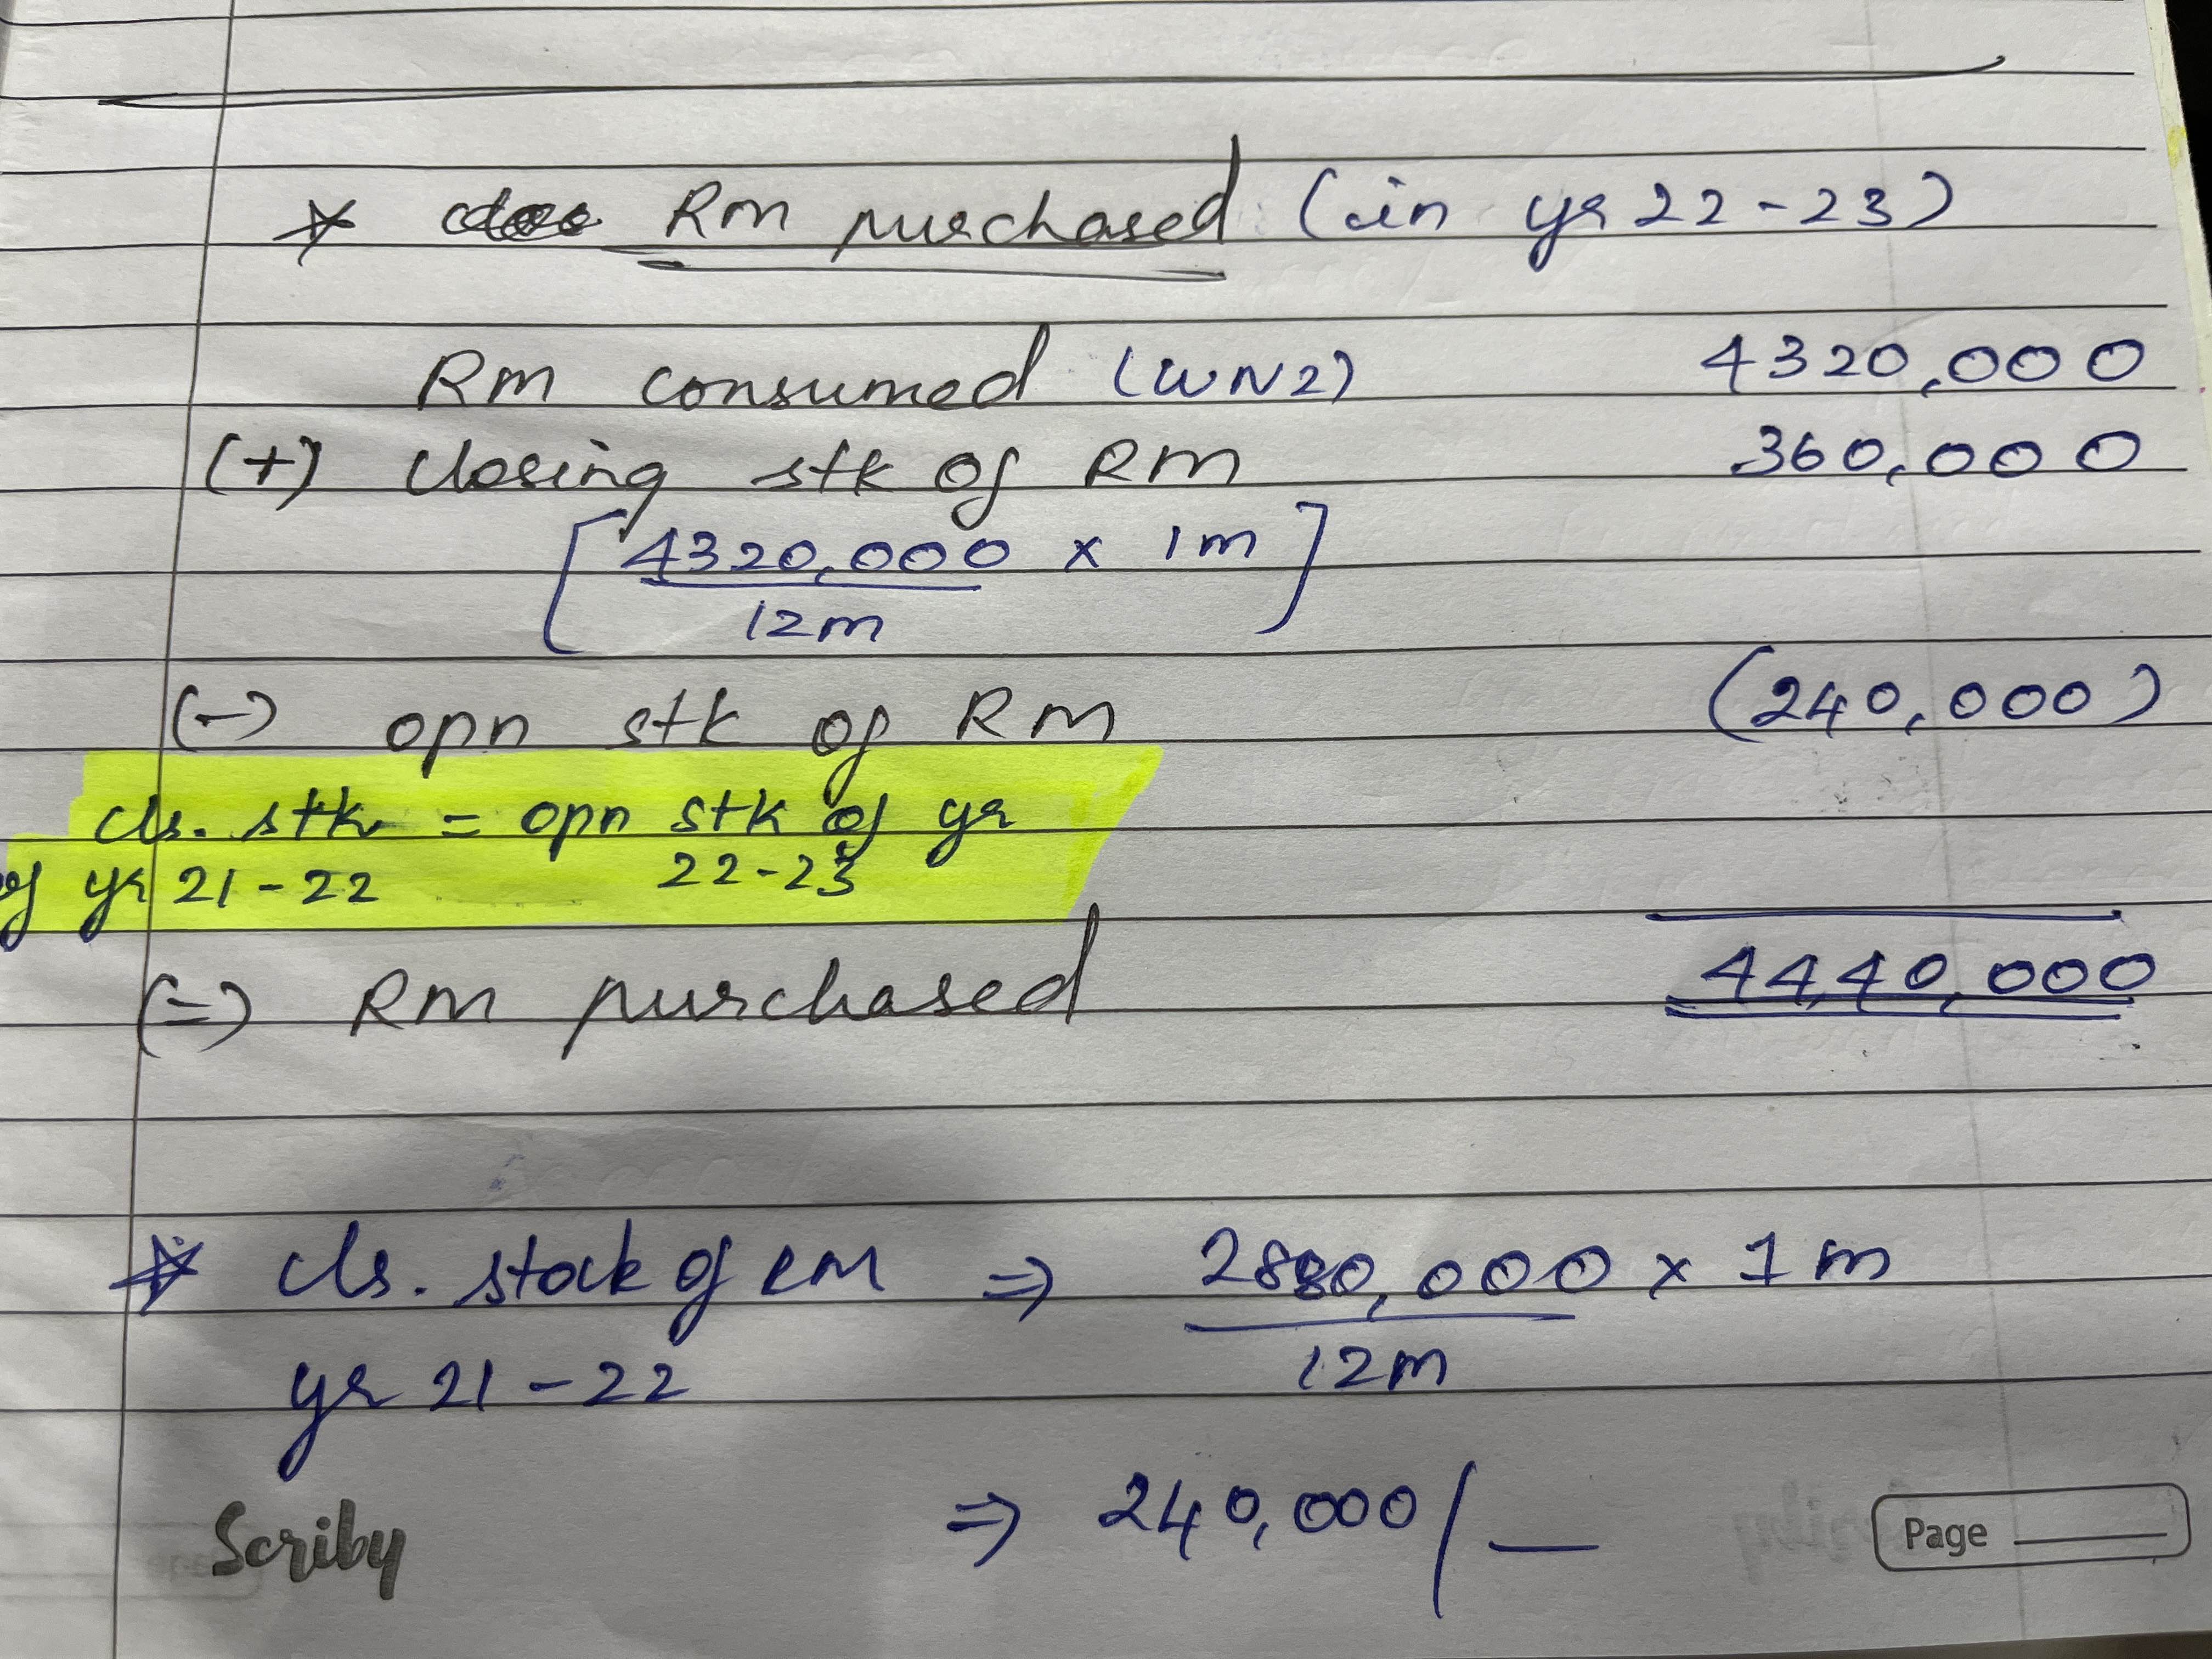 * RM purchased (in yr 22-23)
RM consumed (WN2) 4320,000
(+) closing stk of RM 360,000
[4320,000 x 1m]
12m
(-) opn stk of RM (240,000)
cls. stk = opn stk of yr
of yr 21-22 22-23
(=) RM purchased 4440,000
* cls. stock of RM => 2880,000 x 1m
yr 21-22 12m
=> 240,000/-
Scriby Page